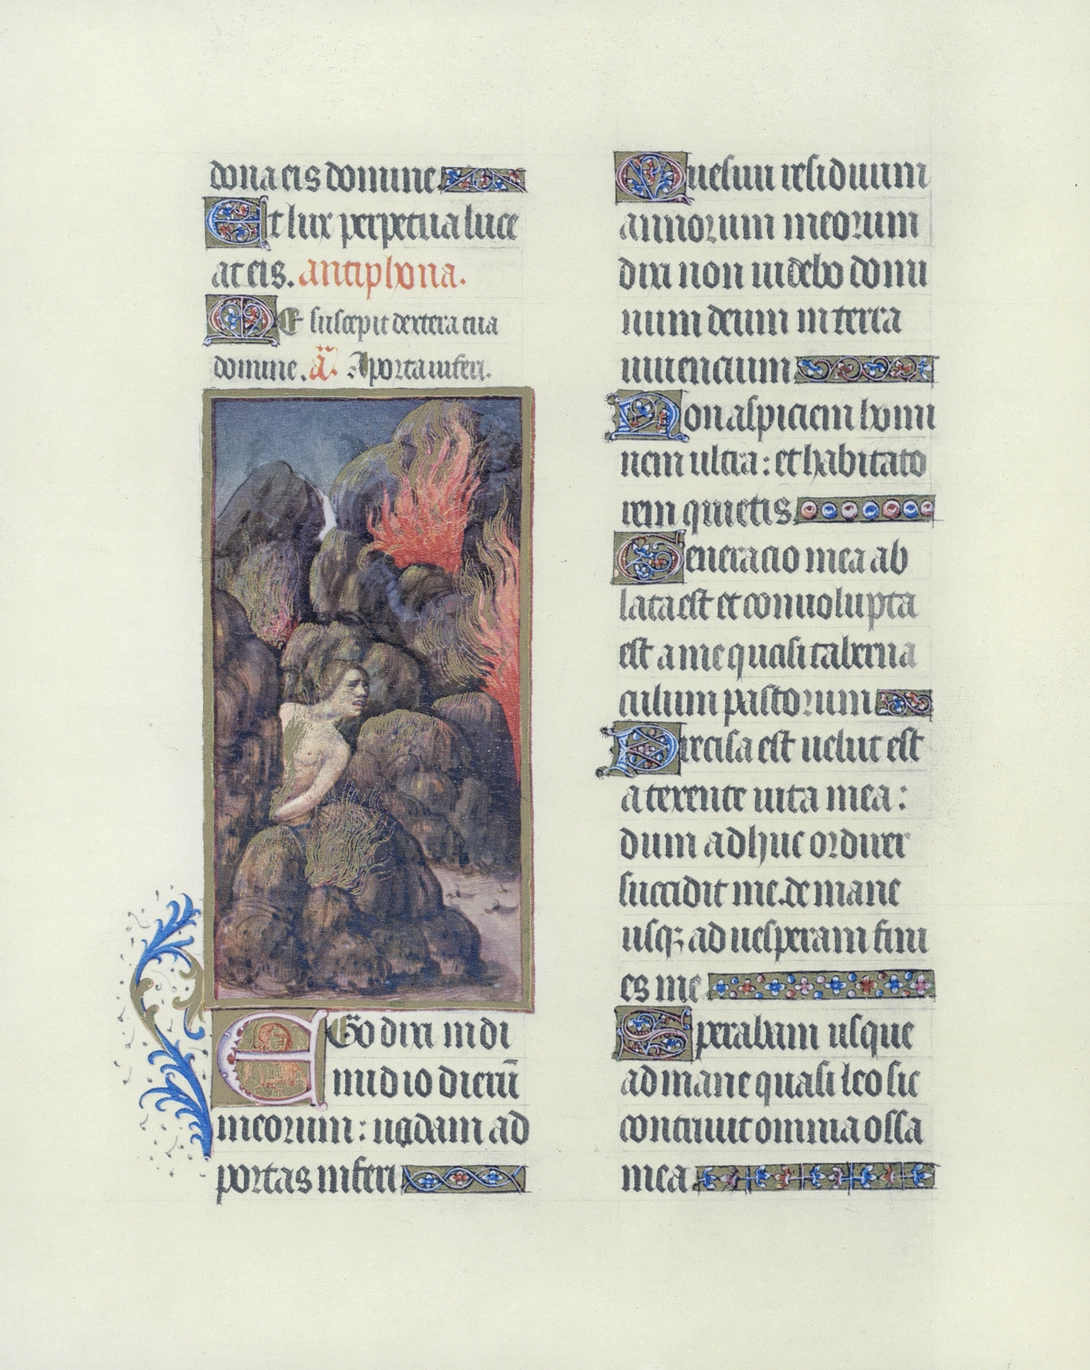 dona eis domine
Et lux perpetua luce
at eis. antiphona.
Me suscepit dextera tua
domine. añ. A porta inferi.
Ego dixi in di
midio dierū
meorum: uadam ad
portas inferi
Quesiui residuum
annorum meorum
dixi non uidebo domi
num deum in terra
uiuencium
Non aspiciam homi
nem ultra: et habitato
rem quietis
Generacio mea ab
lata est et conuoluta
est a me quasi taberna
culum pastorum
Precisa est uelut est
a texente uita mea:
dum adhuc ordirer
succidit me. de mane
usq; ad uesperam fini
es me
Sperabam usque
ad mane quasi leo sic
contriuit omnia ossa
mea